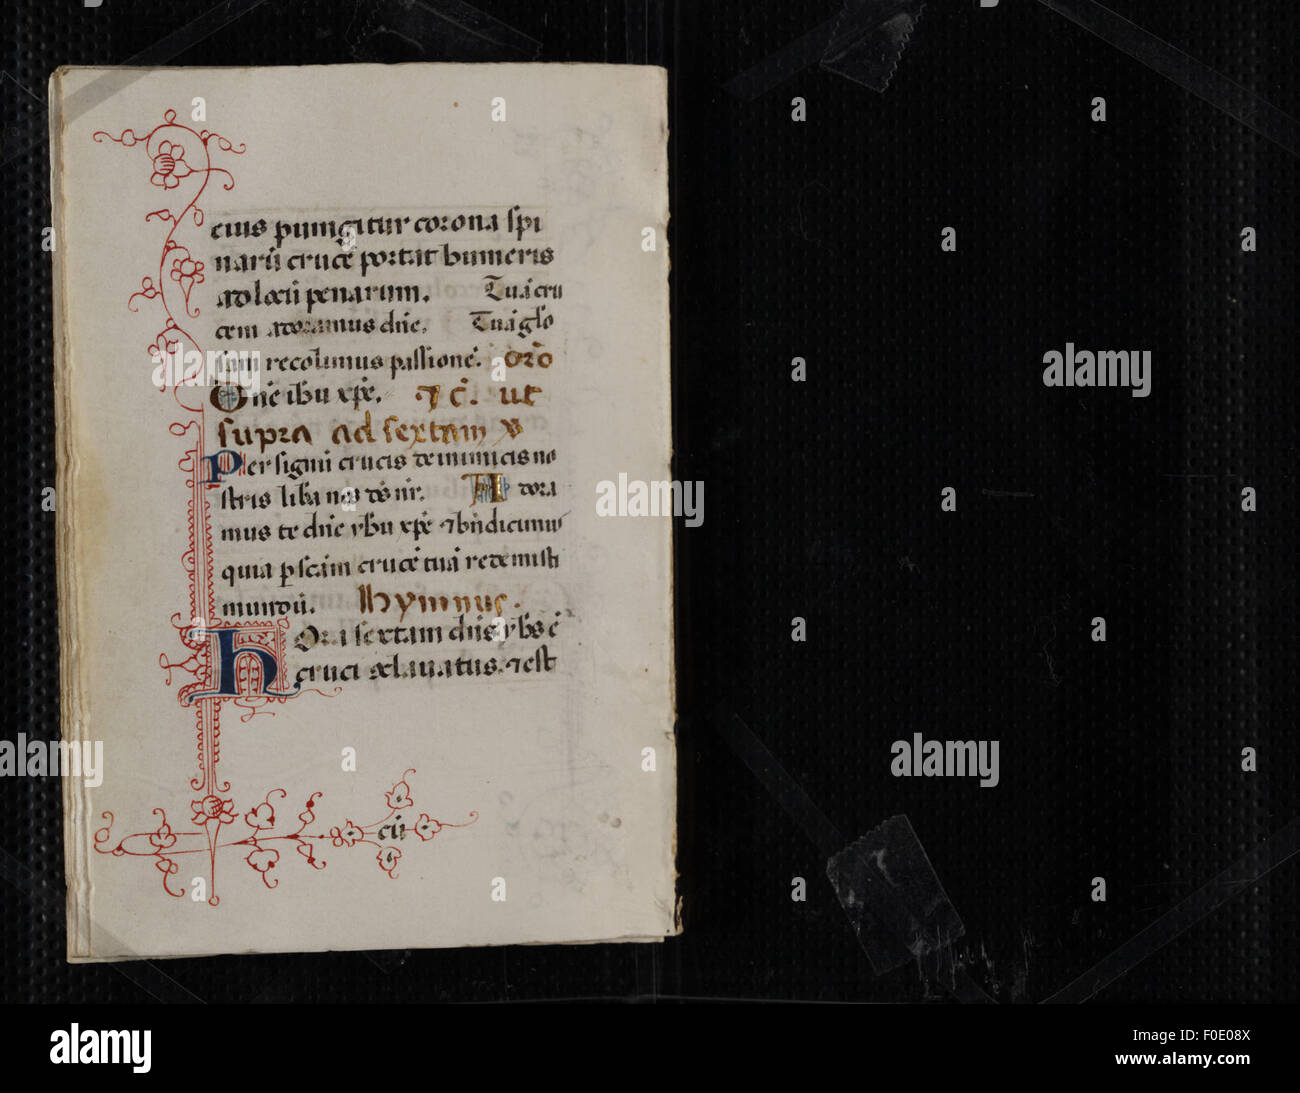 eius pungitur corona spi
narū crucē portat humeris
ad locū penarum. Tuā cru
cem adoramus dñe. Tuā glo
sam recolimus passionē. oro
Dñe ihu xp̄e. ⁊ c̄. ut
supra ad sextam ℣
Per signū crucis de inimicis no
stris libera nos ds̄ nr̄. Adora
mus te dñe yhu xp̄e ⁊ bn̄dicimus
quia p scām crucē tuā redemisti
mundū. hymnus.
Hora sextam dñs yhs ē
cruci clavatus. ⁊ est
cū
a alamy stock photo
alamy
Image ID: F0E08X
www.alamy.com